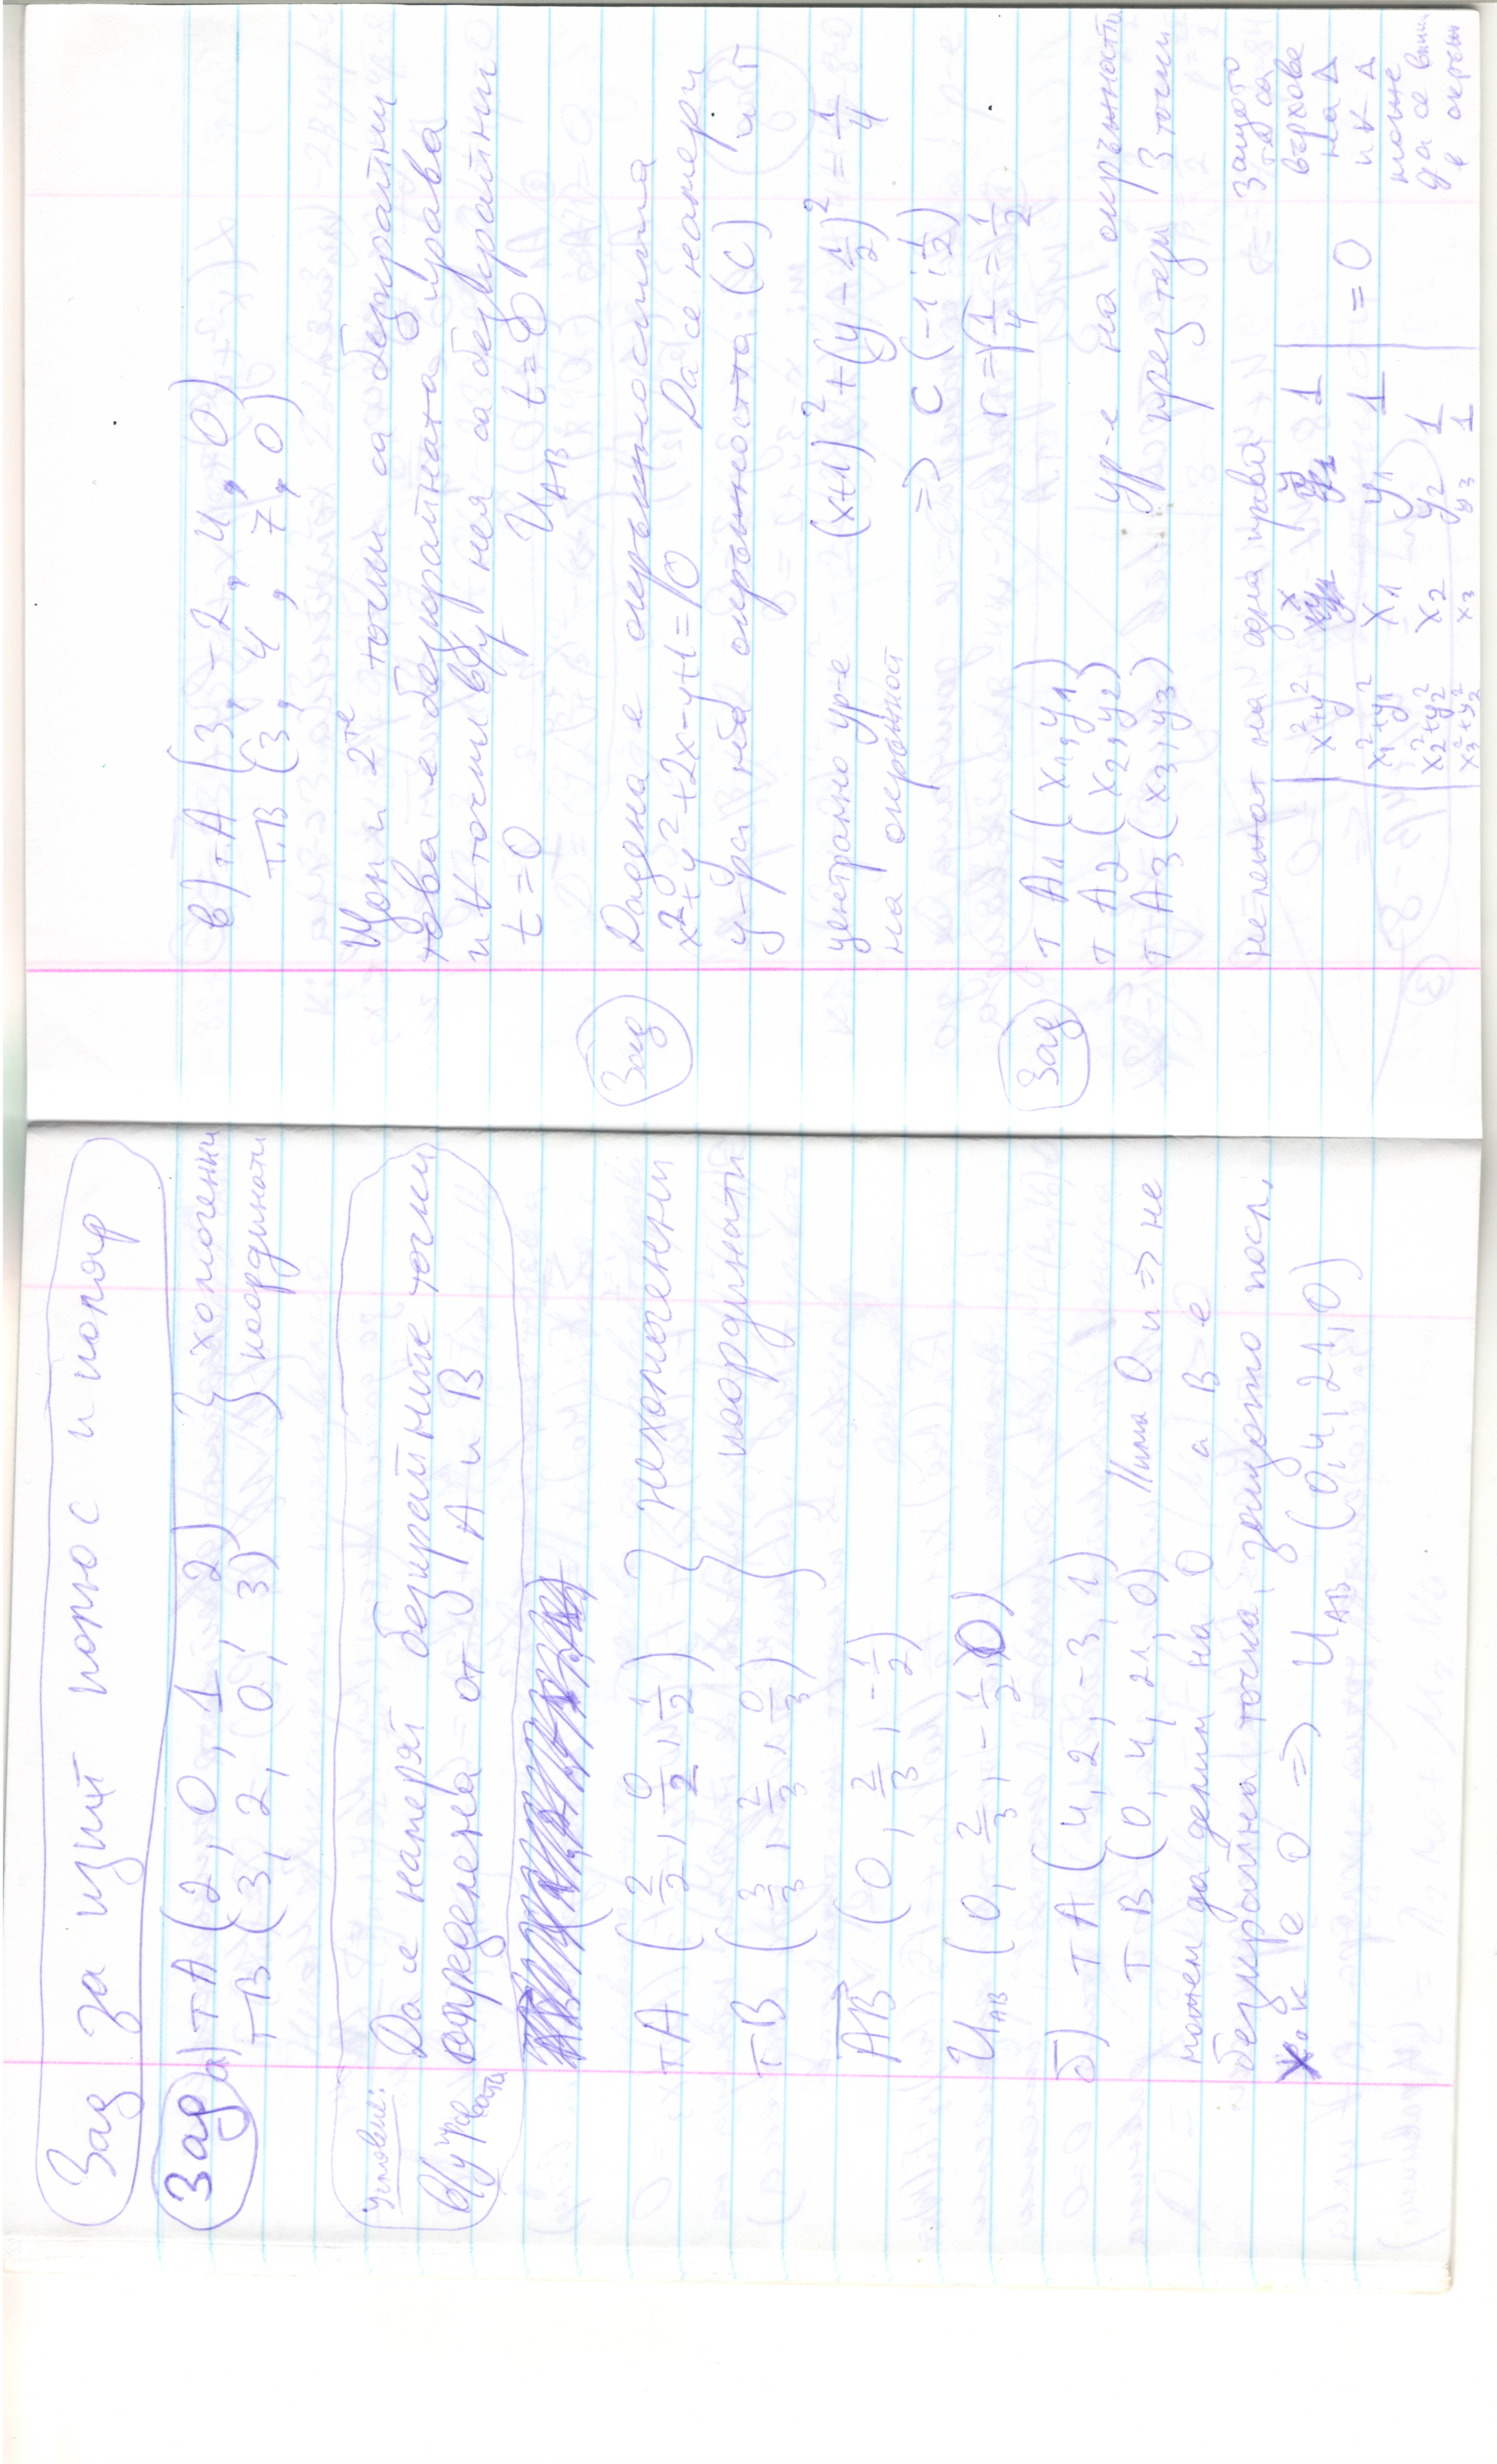 Зад за изпит полюс и поляр
Зад а) т A (2, 0, 1, 2) } хомогенни
т B (3, 2, 0, 3) } координати
Условие:
Да се намерят безкрайните точки
в/у правата определена от A и B
т A (2/2, 0/2, 1/2) } нехомогенни
т B (3/3, 2/3, 0/3) } координати
AB (0, 2/3, -1/2)
U_AB (0, 2/3, -1/2, 0)
б) т A (4, 2, -3, 1)
т B (0, 4, 21, 0) Има 0 и => не
можем да делим на 0 а B е
безкрайна точка, защото посл.
к е 0 => U_AB (0, 4, 21, 0)
в) т A (3, -2, 4, 0)
т. B (3, 4, 7, 0)
Щом и 2те точки са безкрайни
това е безкрайната права
и t точки в/у нея са безкрайни
t = 0 U_AB t = ∞
Зад Дадена е окръжността
x²+y²+2x-y+1=0 Да се намери
у-ра на окръжността (C) и r
централно ур-е (x+1)²+(y-1/2)²=1/4
на окръжност => C (-1; 1/2)
r=√1/4=1/2
Зад т A1 (x1, y1)
т A2 (x2, y2) ур-е на окръжността
т A3 (x3, y3) през тези 3 точки
не лежат на една права защото
та са
върхове
на Δ
и к Δ
може
да се впише
в окръжн
| x²+y² x y 1 |
| x1²+y1² x1 y1 1 | = 0
| x2²+y2² x2 y2 1 |
| x3²+y3² x3 y3 1 |